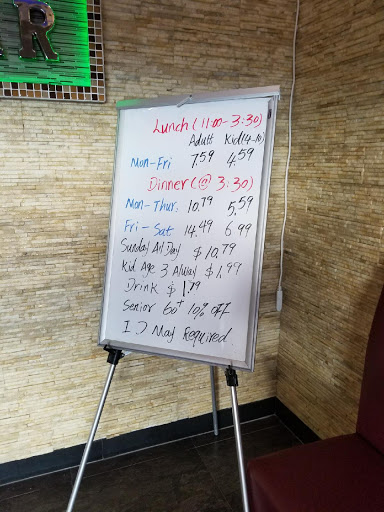 AR
Lunch (11:00-3:30)
Adult Kid(4-10)
Mon-Fri 7.59 4.59
Dinner (@ 3:30)
Mon-Thur: 10.79 5.59
Fri-Sat 14.49 6.99
Sunday All Day $10.79
Kid Age 3 Alway $1.99
Drink $1.79
Senior 60+ 10% OFF
I D May Required